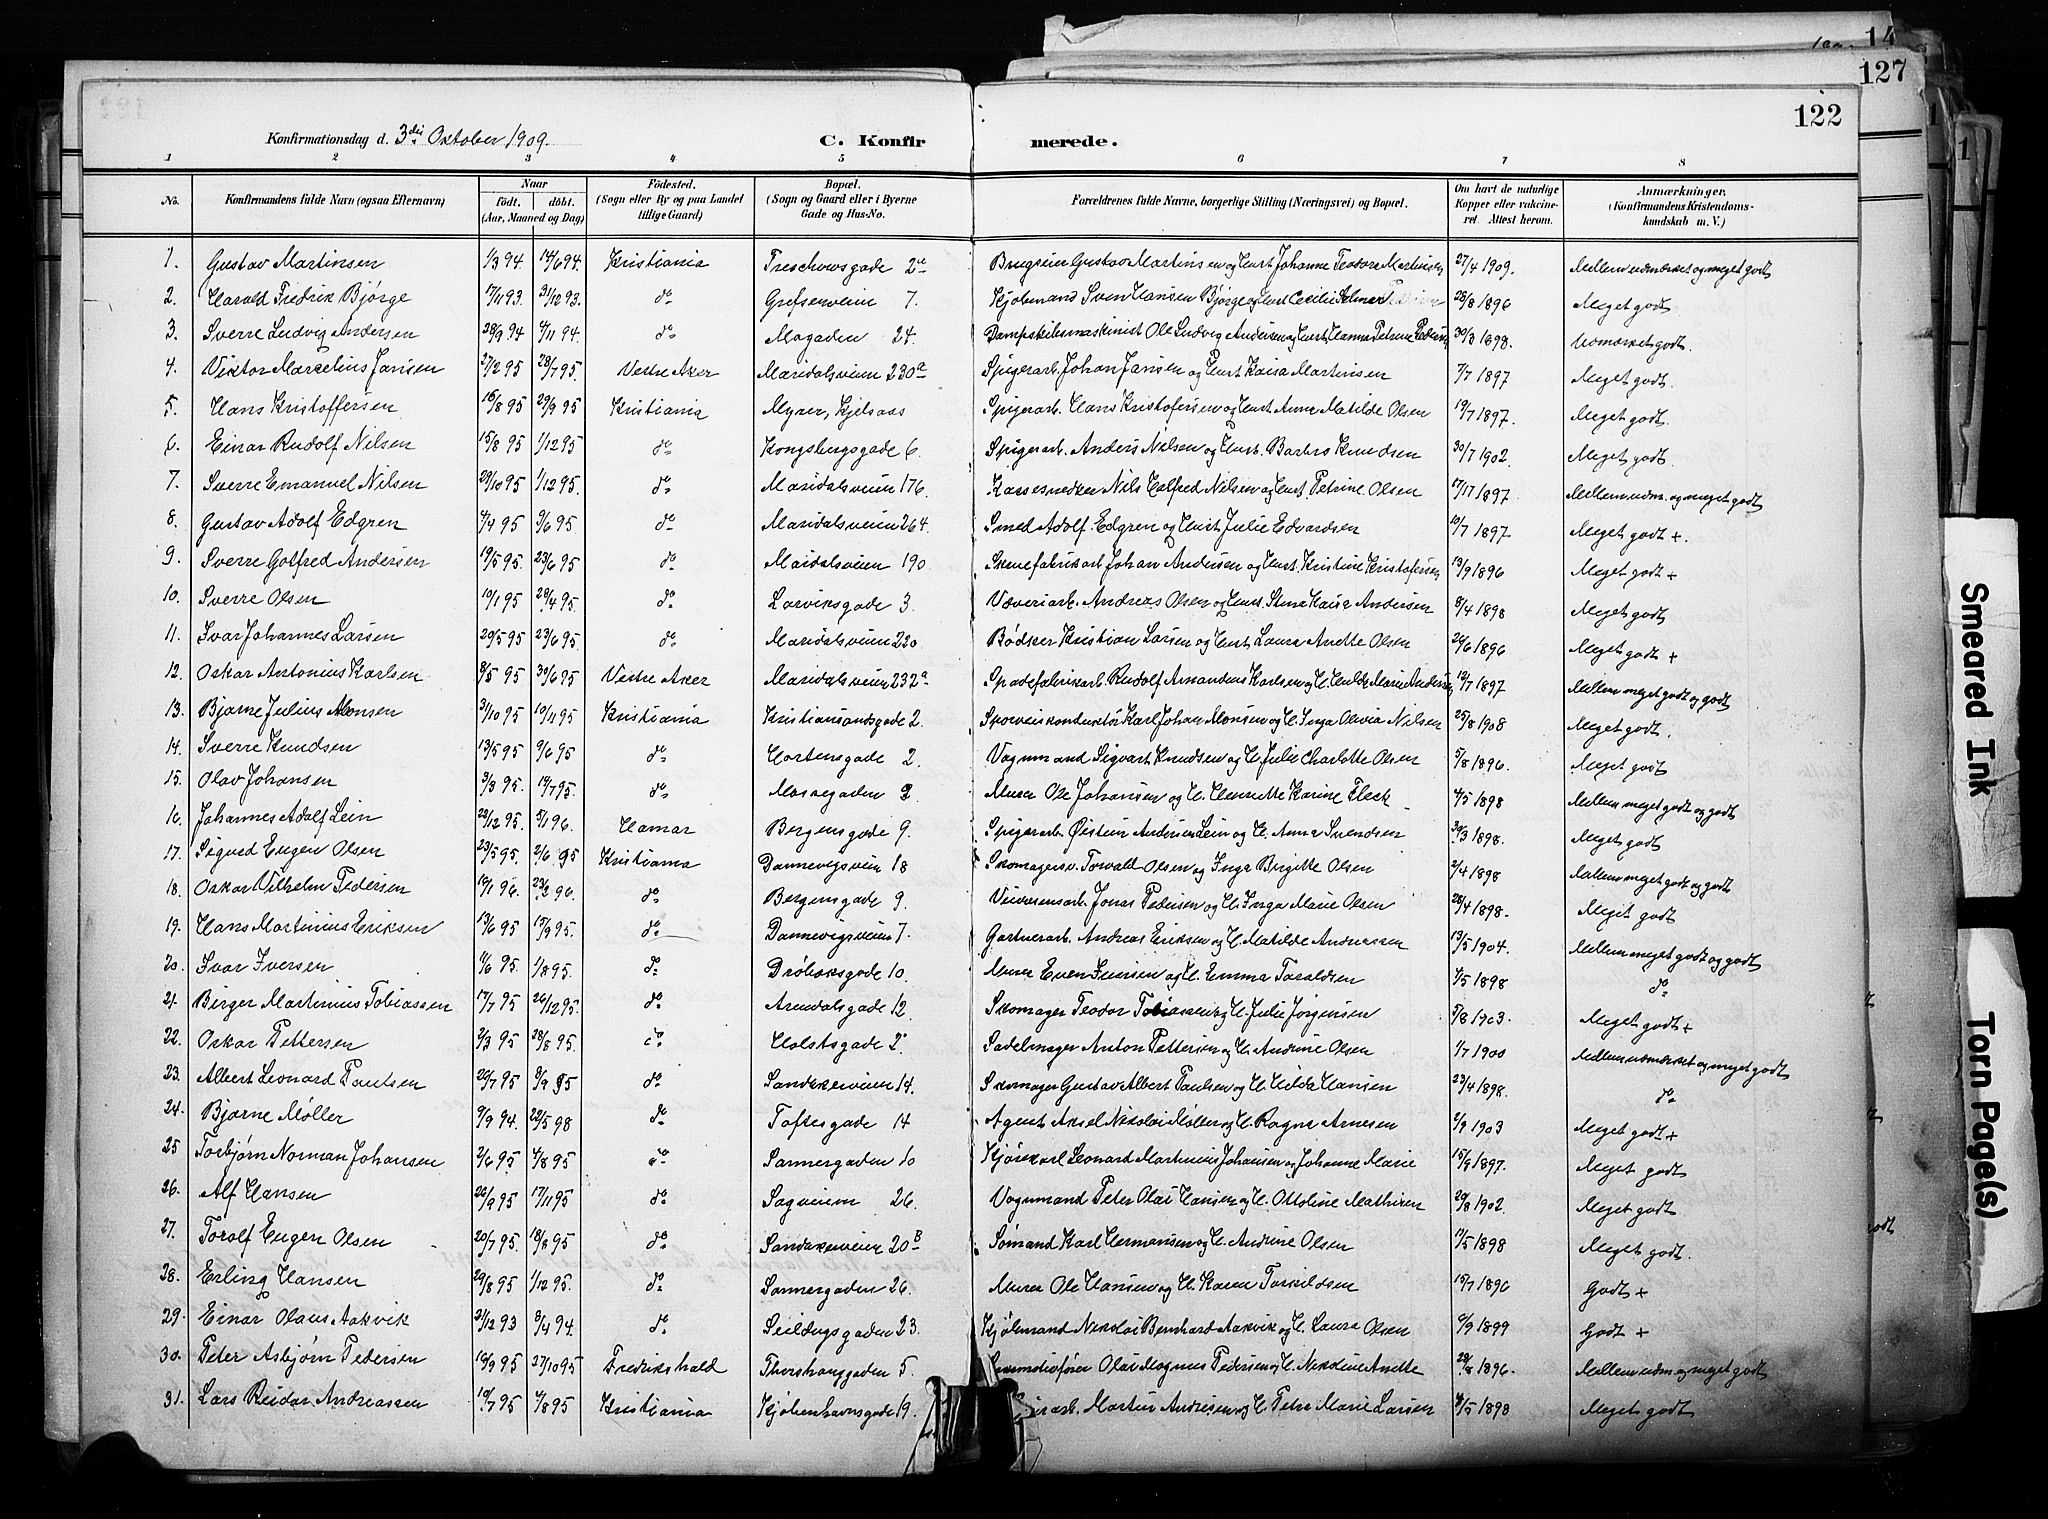 14
127
122
Konfirmationsdag d. 3die Oktober 1909.
C. Konfirmerede.
1 2 3 4 5 6 7 8
No. Konfirmandens fulde Navn (ogsaa Efternavn) Naar födt. döbt. (Aar, Maaned og Dag) Födested. (Sogn eller By og paa Landet tillige Gaard) Bopæl. (Sogn og Gaard eller i Byerne Gade og Hus-No. Forældrenes fulde Navne, borgerlige Stilling (Næringsvei) og Bopæl. Om havt de naturlige Kopper eller vakcineret. Attest herom. Anmærkninger. (Konfirmandens Kristendomskundskab m. V.)
1. Gustav Martinsen 1/3 94. 14/6 94. Kristiania Treschowsgade 2 Gustav Martinsen og Hust. Johanne Teodora Martinsen 27/4 1909. Mellem udmærket og meget godt
2. Harald Fredrik Bjørge 17/11 93. 31/12 93. do Grefsenveien 7. Kjøbmand Sven Hansen Bjørge og Hust 28/8 1896 Meget godt.
3. Sverre Ludvig Andersen 28/9 94 4/11 94. do Mogaden 24. Dampskibsmaskinist Ole Ludvig Andersen og Hust. Hanna Petrine Pedersen 30/3 1898. Udmærket godt.
4. Viktor Marcelius Jansen 27/2 95 28/7 95. Vestre Aker Maridalsveien 230a Spigerarb. Johan Jansen og Hust Kaisa Martinsen 7/7 1897 Meget godt.
5. Hans Kristoffersen 16/8 95 29/9 95 Kristiania Myrer, Kjelsaas Spigerarb. Hans Kristofersen og Hust. Anna Matilde Olsen 19/7 1897. Meget godt.
6. Einar Rudolf Nilsen 15/8 95 1/12 95 do Kongsbergsgade 6. Spigerarb. Anders Nilsen og Hust. Barbro Knudsen 30/7 1902. Meget godt.
7. Sverre Emanuel Nilsen 29/10 95 1/12 95. do Maridalsveien 176. Nils Halfred Nilsen og Hust. Petrine Olsen 17/17 1897 Mellem udm. og meget godt
8. Gustav Adolf Edgren 4/4 95 9/6 95 do Maridalsveien 264. Smed Adolf Edgren og Hust Julie Edvardsen 10/7 1897 Meget godt +.
9. Sverre Gotfred Andersen 19/5 95. 23/6 95 do Maridalsveien 190. Johan Andersen og Hust. Kristine Kristofersen 13/9 1896 Meget godt +
10. Sverre Olsen 10/1 95 28/4 95. do Larviksgade 3. Væveriarb. Andreas Olsen og Hust. Stina Kaisa Andersen 8/4 1898 Meget godt
11. Ivar Johannes Larsen 29/5 95 23/6 95 do Maridalsveien 220. Bødker Kristian Larsen og Hust Laura Anette Olsen 26/6 1896 Meget godt +
12. Oskar Antonius Karlsen 8/5 95 30/6 95 Vestre Aker Maridalsveien 232a Spadefabrikarb. Rudolf Amandus Karlsen og H. Hulda Marie Andersen 12/7 1897 Mellem meget godt og godt
13. Bjarne Julius Monsen 31/10 95 10/11 95 Kristiania Kristiansandsgade 2. Sporveiskonduktør Karl Johan Monsen og H. Inga Olivia Nilsen 25/8 1908 Meget godt.
14. Sverre Knudsen 13/5 95 9/6 95 do Hortensgade 2. Vognmand Sigvart Knudsen og H. Julie Charlotte Olsen 5/8 1896. Meget godt
15. Olav Johansen 3/3 95. 14/7 95. do Mossegaden 2 Murer Ole Johansen og H. Henriette Karine Fleck 4/5 1898 Mellem meget godt og godt
16. Johannes Adolf Lein 22/12 95. 5/1 96. Hamar Bergensgade 9. Spigerarb. Øistein Andersen Lein og H. Anna Svendsen 30/3 1898. Meget godt
17. Sigurd Eugen Olsen 23/5 95. 2/6 95 Kristiania Dannevigsveien 18 Skomagersv. Torvald Olsen og Inga Birgitte Olsen 2/4 1898 Mellem meget godt og godt
18. Oskar Vilhelm Pedersen 19/1 96. 23/2 96. do Bergensgade 9. Veivæsensarb. Jonas Pedersen og H. Inga Marie Olsen 28/4 1898. Meget godt
19. Hans Martinius Eriksen 13/6 95 15/9 95. do Dannevigsveien 7. Gartnerarb. Andreas Eriksen og H. Matilde Andreassen 13/5 1904. Mellem meget godt og godt
20. Ivar Iversen 11/6 95. 1/8 95. do Drøbaksgade 10. Murer Even Iversen og H. Emma Toraldsen 7/5 1898 do
21. Birger Martinius Tobiassen 17/7 95 26/12 95. do Arendalsgade 12. Skomager Teodor Tobiassen og H. Julie Jørgensen 5/8 1903. Meget godt +
22. Oskar Pettersen 2/3 95 28/8 95. do Holstsgade 2. Sadelmager Anton Pettersen og H. Andrine Olsen 1/7 1900 Mellem udmærket og meget godt
23. Albert Leonard Paulsen 20/7 95 8/9 95 do Sandakerveien 14. Skomager Gustav Albert Paulsen og H. Hilda Hansen 23/4 1898. do
24. Bjarne Møller 9/9 94. 22/5 98 do Toftesgade 14 Agent Aksel Nikolai Møller og H. Ragna Arnesen 2/9 1903 Meget godt +
25 Torbjørn Norman Johansen 2/6 95 4/8 95 do Sannergaden 10 Kjørekarl Leonard Martinius Johansen og Johanne Marie 15/9 1897. Meget godt
26. Alf Hansen 22/9 95 17/11 95 do Sagveien 26. Vognmand Peter Olai Hansen og H. Ottoline Mathisen 20/8 1902. Meget godt
27. Torolf Eugen Olsen 20/7 95. 18/8 95 do Sandakerveien 20B Sømand Karl Hermansen og H. Andrine Olsen 17/5 1898 Meget godt.
28. Erling Hansen 29/8 95 1/12 95. do Sannergaden 26. Murer Ole Hansen og H. Karen Torkildsen 15/7 1896 Godt +
29. Einar Olaus Aakvik 21/12 93 8/4 94. do Seildugsgaden 23. Kjøbmand Nikolai Bernhard Aakvik og H. Laura Olsen 9/9 1899 Godt +
30. Peter Asbjørn Pedersen 19/9 95 27/10 95 Fredrikshald Thorshauggaden 5. Olai Magnus Pedersen og H. Nikoline Anette 28/8 1896. Mellem udm og meget godt
31. Lars Reidar Andreassen 10/7 95 4/8 95 Kristiania Kjøbenhavnsgade 19. Martin Andresen og H. Petra Marie Larsen 11/5 1898 Meget godt
Smeared Ink
Torn Page(s)